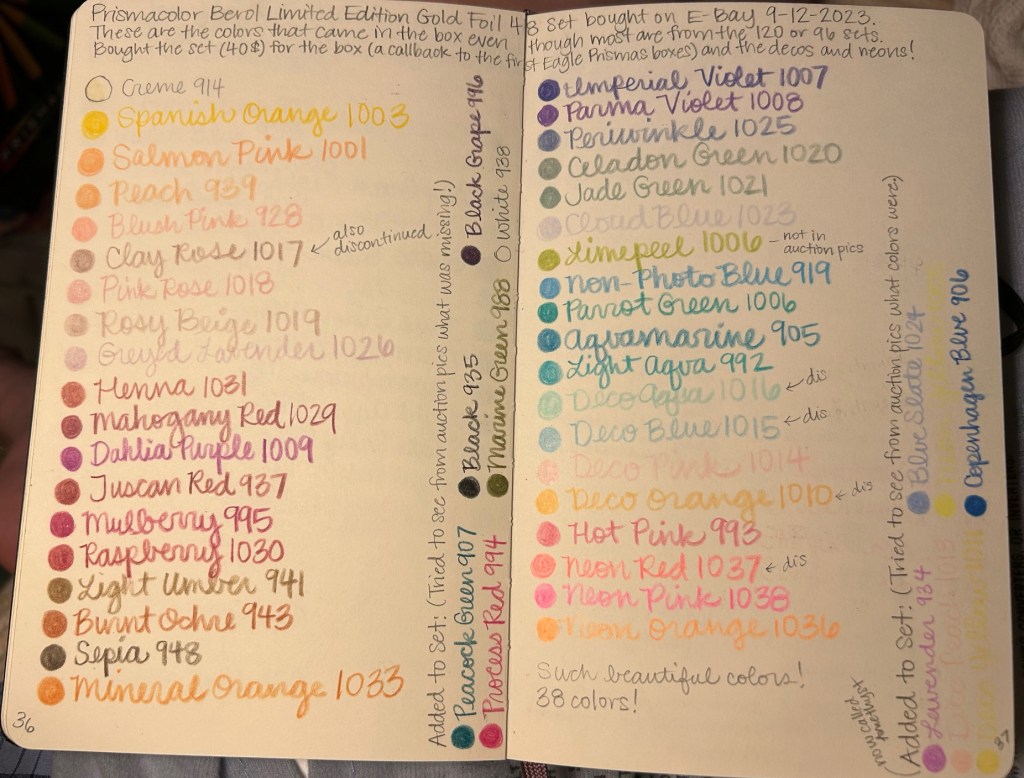 Prismacolor Berol Limited Edition Gold Foil 48 set bought on E-Bay 9-12-2023.
These are the colors that came in the box even though most are from the 120 or 96 sets.
Bought the set (40$) for the box (a callback to the first Eagle Prismas boxes) and the decos and neons!
Creme 914
Spanish Orange 1003
Salmon Pink 1001
Peach 939
Blush Pink 928
Clay Rose 1017
also
discontinued
Pink Rose 1018
Rosy Beige 1019
Greyed Lavender 1026
Henna 1031
Mahogany Red 1029
Dahlia Purple 1009
Tuscan Red 937
Mulberry 995
Raspberry 1030
Light Umber 941
Burnt Ochre 943
Sepia 948
Mineral Orange 1033
36
Added to Set: (Tried to see from auction pics what was missing!)
Peacock Green 907
Black 935
Black Grape 996
Process Red 994
Marine Green 988
White 938
Imperial Violet 1007
Parma Violet 1008
Periwinkle 1025
Celadon Green 1020
Jade Green 1021
Cloud Blue 1023
Limepeel 1006 - not in
auction pics
Non-Photo Blue 919
Parrot Green 1006
Aquamarine 905
Light Aqua 992
Deco Aqua 1016 dis
Deco Blue 1015 dis
Deco Pink 1014
Deco Orange 1010 dis
Hot Pink 993
Neon Red 1037 dis
Neon Pink 1038
Neon Orange 1036
Such beautiful colors!
38 colors!
Added to Set: (Tried to see from auction pics what colors were)
now called
Lavender 934
Blue Slate 1024
Deco Peach 1013
Copenhagen Blue 906
37